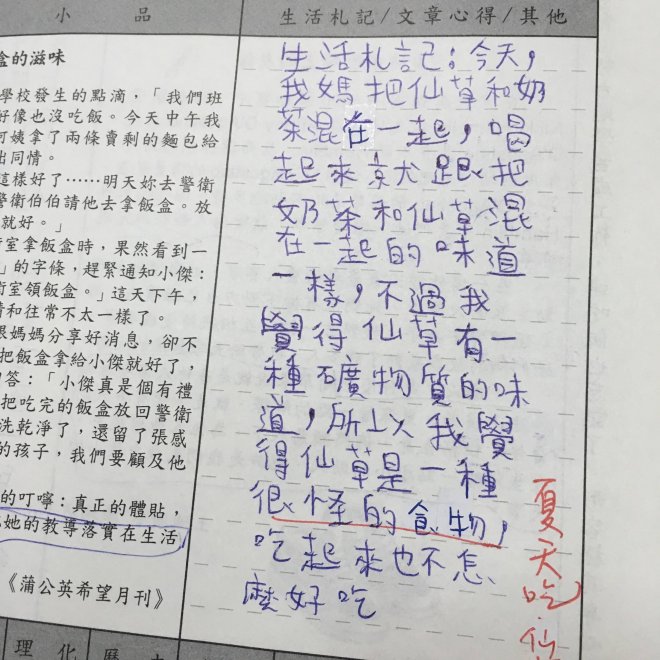 小　　品
盒的滋味
學校發生的點滴，「我們班
好像也沒吃飯。今天中午我
阿姨拿了兩條賣剩的麵包給
出同情。
這樣好了……明天妳去警衛
警衛伯伯請他去拿飯盒。放
就好。」
室拿飯盒時，果然看到一
」的字條，趕緊通知小傑：
室領飯盒。」這天下午，
情和往常不太一樣了。
媽媽分享好消息，卻不
把飯盒拿給小傑就好了，
答：「小傑真是個有禮
把吃完的飯盒放回警衛
洗乾淨了，還留了張感
的孩子，我們要顧及他
的叮嚀：真正的體貼，
她的教導落實在生活
《蒲公英希望月刊》
理化
生活札記/文章心得/其他
生活札記：今天，
我媽把仙草和奶
茶混在一起，喝
起來就跟把
奶茶和仙草混
在一起的味道
一樣，不過我
覺得仙草有一
種礦物質的味
道，所以我覺
得仙草是一種
很怪的食物，
吃起來也不怎
麼好吃
夏天吃仙